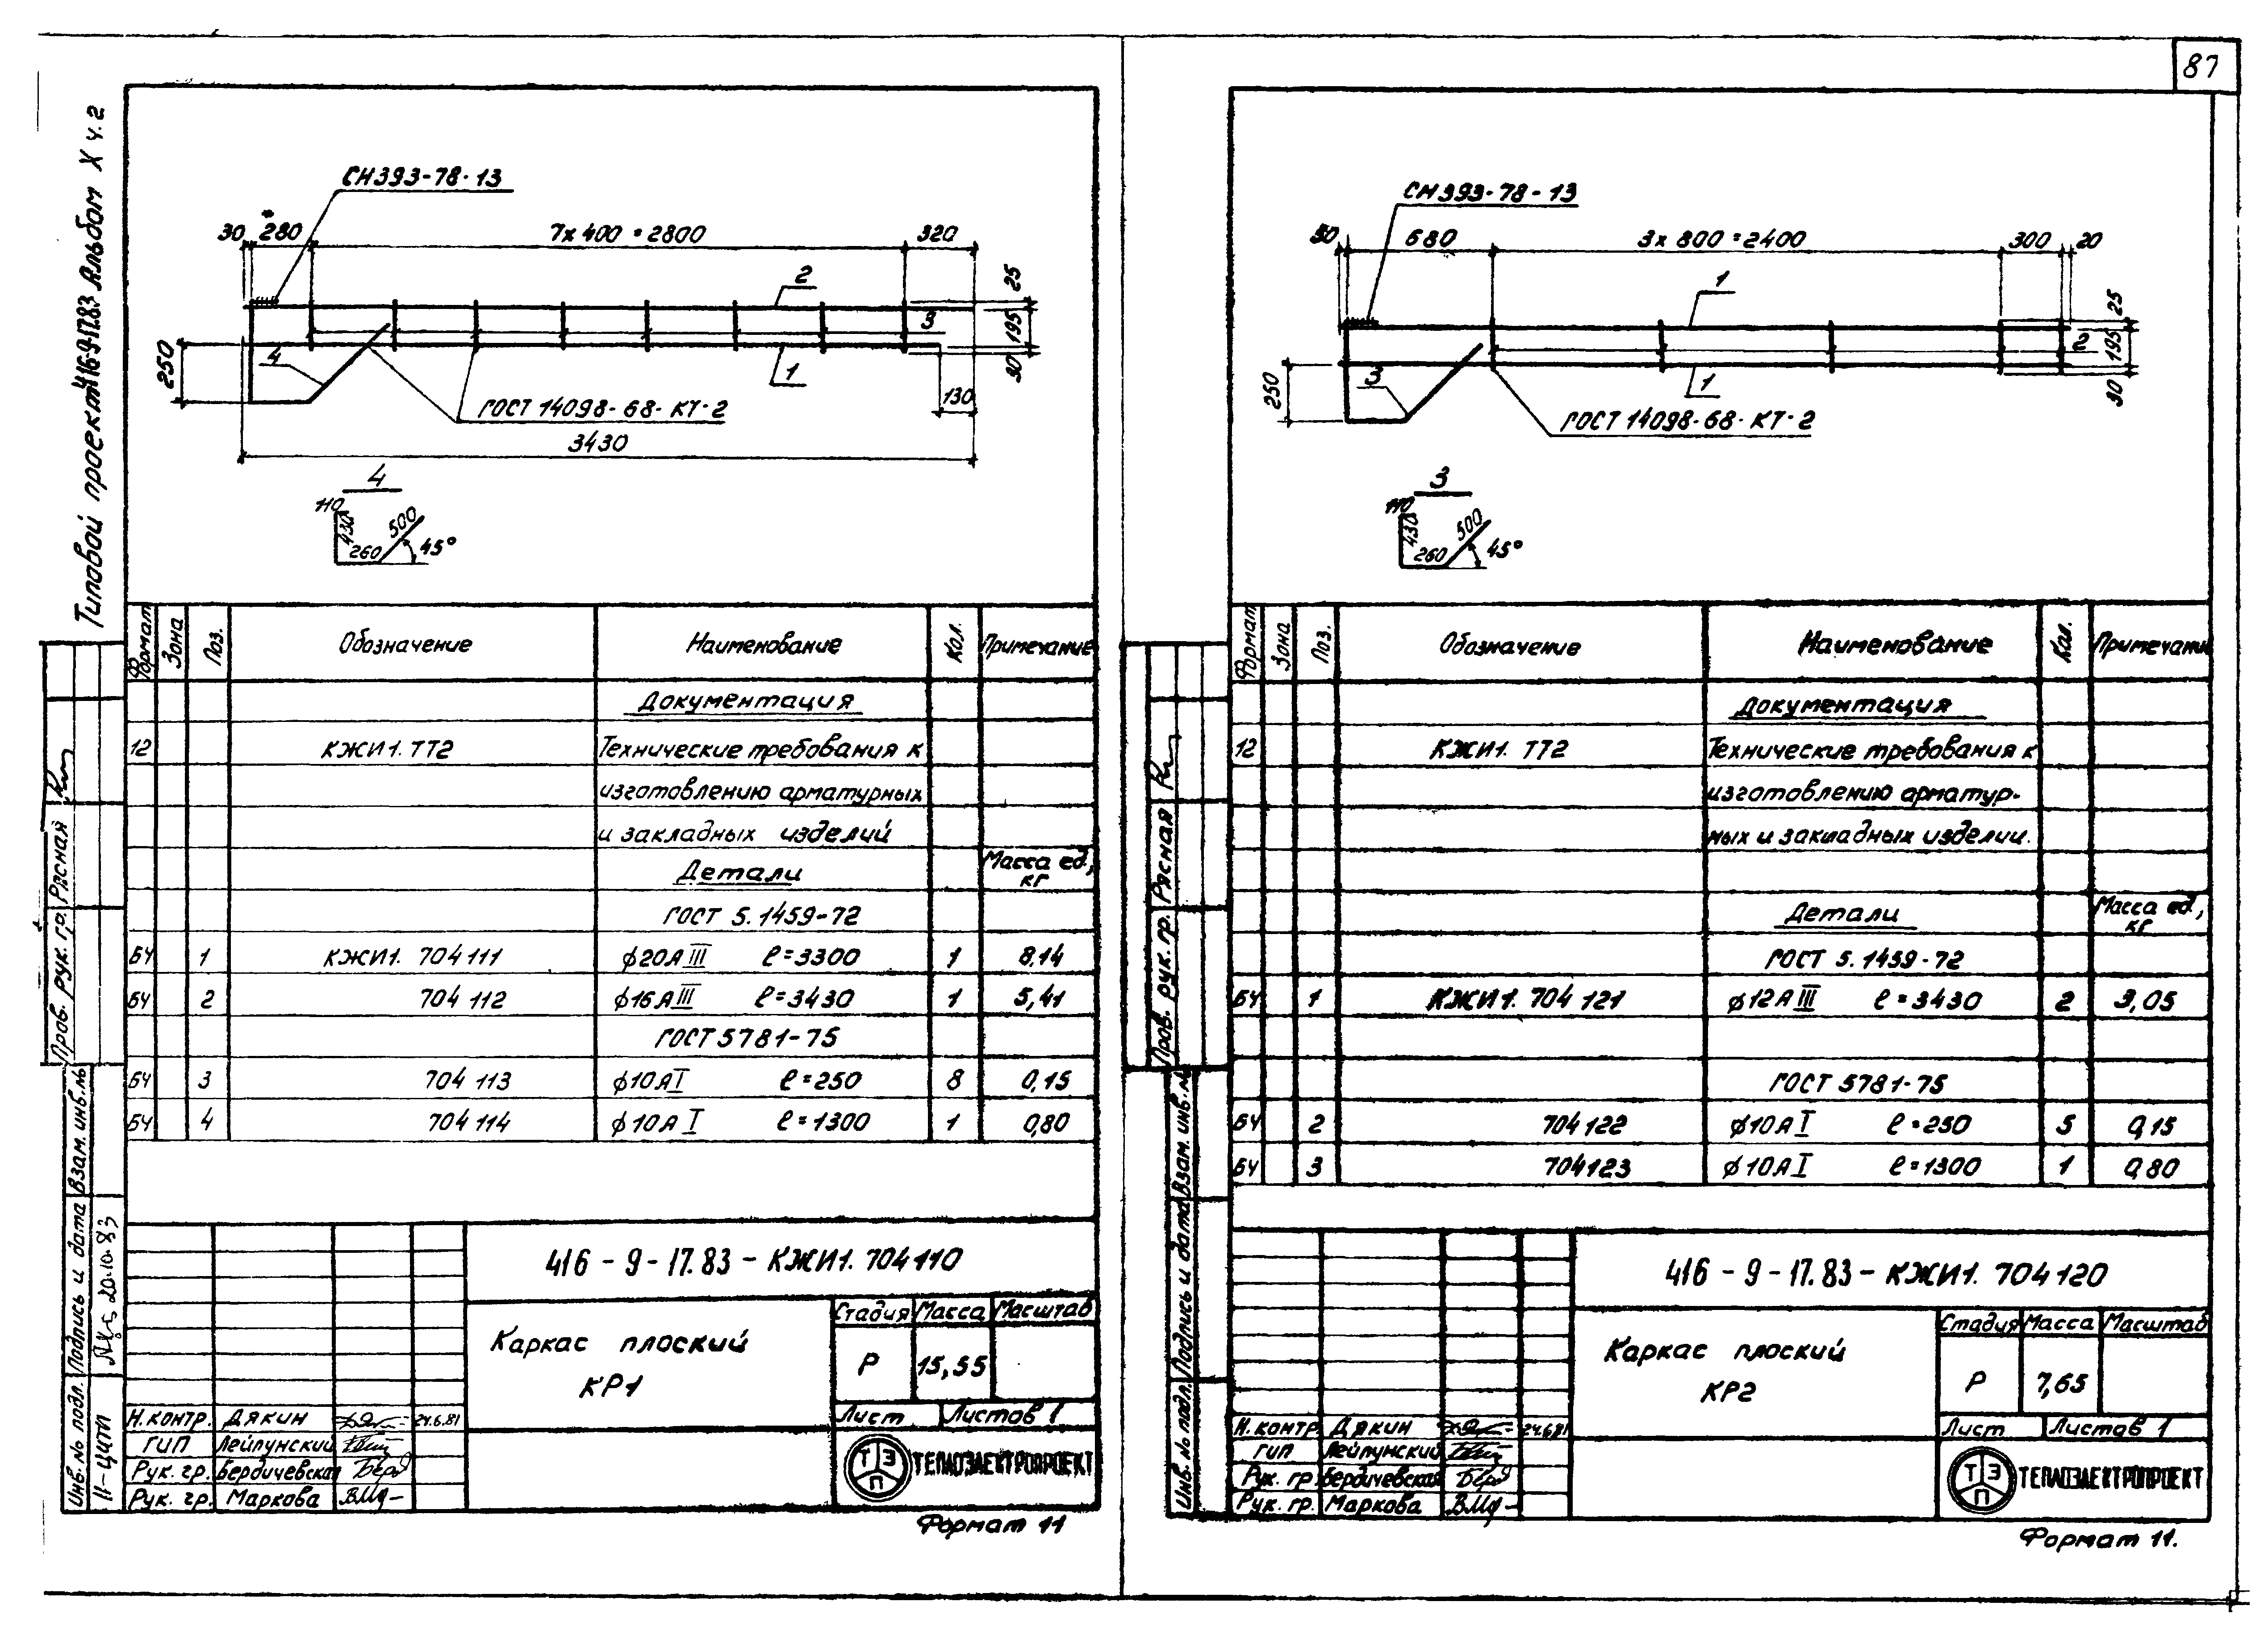 87
Типовой проект 416-9-17.83 Альбом X ч.2
СН393-78-13
30 280* 7×400=2800 320
2
25
195
30
3
4
1
250
130
ГОСТ 14098-68-КТ-2
3430
4
110
430
260
500
45°
Формат Зона Поз. Обозначение Наименование Кол. Примечание
Документация
12 КЖИ1. ТТ2 Технические требования к
изготовлению арматурных
и закладных изделий
Детали Масса ед, кг
ГОСТ 5.1459-72
БЧ 1 КЖИ1. 704111 ф20АIII ℓ=3300 1 8,14
БЧ 2 704 112 ф16АIII ℓ=3430 1 5,41
ГОСТ 5781-75
БЧ 3 704 113 ф10АI ℓ=250 8 0,15
БЧ 4 704 114 ф10АI ℓ=1300 1 0,80
416-9-17.83-КЖИ1. 704110
Каркас плоский
КР1
Стадия Масса Масштаб
Р 15,55
Лист Листов 1
Н.контр. Дякин 24.6.81
ГИП Лейпунский
Рук. гр. Бердичевская
Рук. гр. Маркова
ТЭП ТЕПЛОЭЛЕКТРОПРОЕКТ
Формат 11
Пров. рук. гр. Рясная
Инв. № подл. Подпись и дата Взам. инв. №
11-ЦИТП 20.10.83
СН393-78-13
680 3×800=2400 300 20
1
25
195
30
2
3
1
250
ГОСТ 14098-68-КТ-2
3
110
430
260
500
45°
Формат Зона Поз. Обозначение Наименование Кол. Примечани
Документация
12 КЖИ1. ТТ2 Технические требования к
изготовлению арматур-
ных и закладных изделий.
Детали Масса ед, кг
ГОСТ 5.1459-72
БЧ 1 КЖИ1. 704 121 ф12АIII ℓ=3430 2 3,05
ГОСТ 5781-75
БЧ 2 704122 ф10АI ℓ=250 5 0,15
БЧ 3 704123 ф10АI ℓ=1300 1 0,80
416-9-17.83-КЖИ1. 704120
Каркас плоский
КР2
Стадия Масса Масштаб
Р 7,65
Лист Листов 1
Н.контр. Дякин 24.6.81
ГИП Лейпунский
Рук. гр. Бердичевская
Рук. гр. Маркова
ТЭП ТЕПЛОЭЛЕКТРОПРОЕКТ
Формат 11.
Пров. рук. гр. Рясная
Инв. № подл. Подпись и дата Взам. инв. №